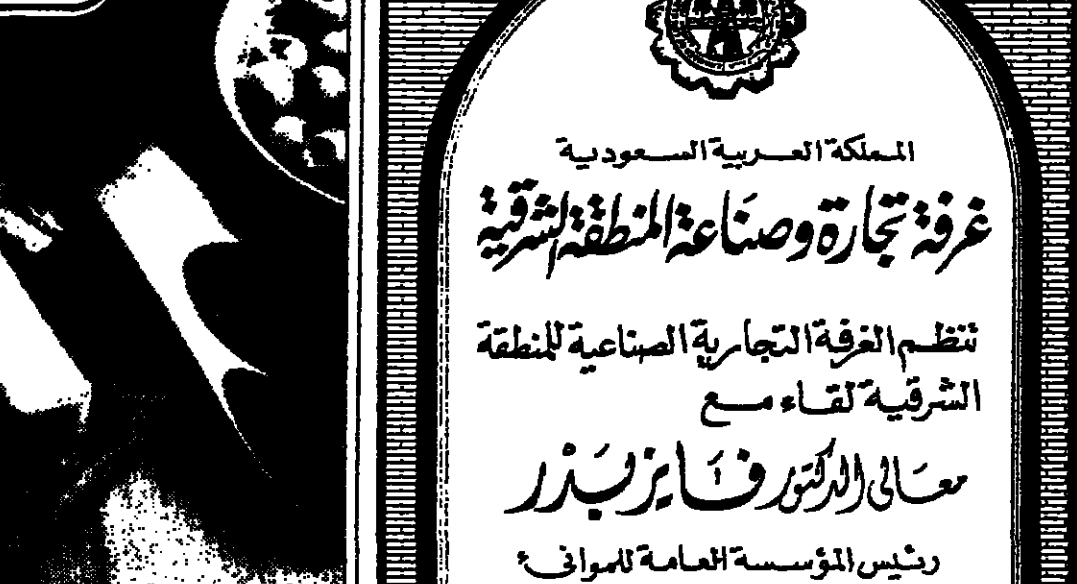 المملكة العربية السعودية
غرفة تجارة وصناعة المنطقة الشرقية
تنظم الغرفة التجارية الصناعية للمنطقة
الشرقية لقاء مع
معالى الدكتور فايز بدر
رئيس المؤسسة العامة للموانىء